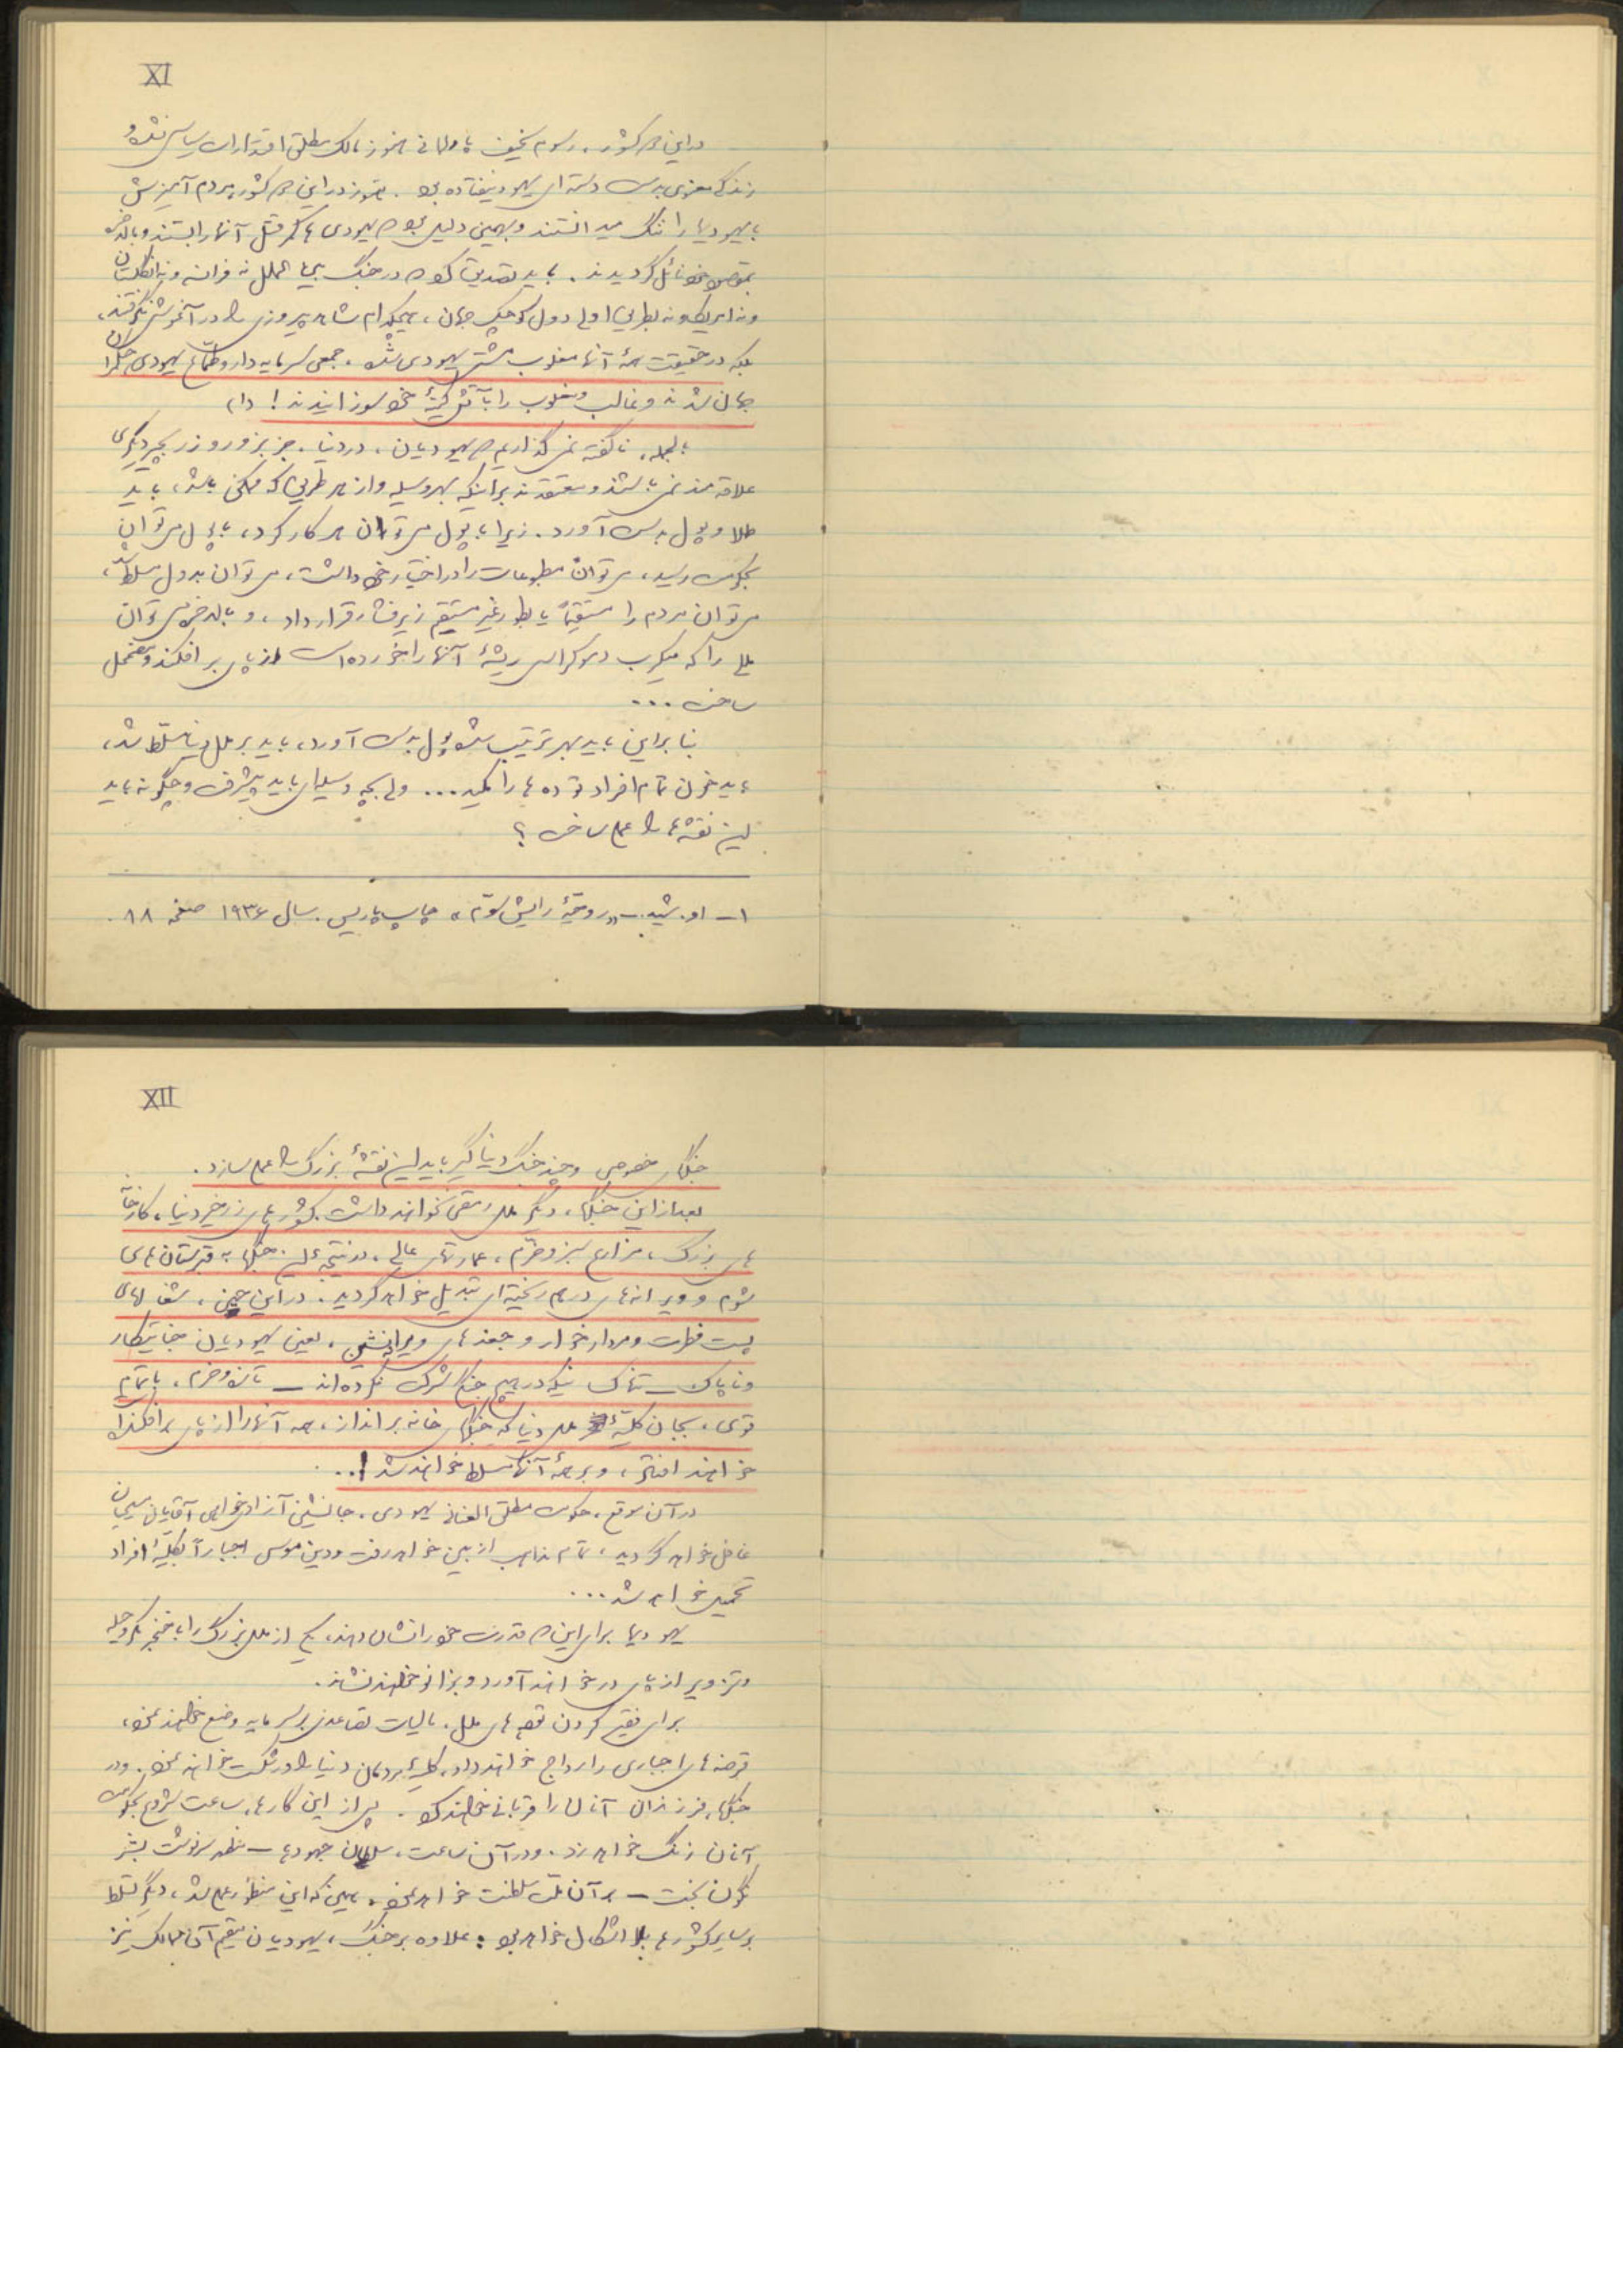 XI
در این دو کشور، رسوم سخیف پارلمانی هنوز مالک مطلق اقتدارات سیاسی نشده و
زندگی معنوی بدست دسته‌ای یهود نیفتاده بود. هنوز در این دو کشور، مردم آمیزش
با یهودیها را ننگ میدانستند و بهمین دلیل بود که یهودی‌ها کمر قتل آنها را بستند و بالاخره
بمقصود خود نائل گردیدند. باید تصدیق کرد که در جنگ بین‌الملل نه فرانسه و نه انگلستان
و نه امریکا و نه بطریق اولی دول کوچک جهان، هیچکدام شاهد پیروزی را در آغوش نگرفتند،
بلکه در حقیقت همهٔ آنها مغلوب مشتی یهودی شده، جمعی سرمایه‌دار و طمّاع یهودی حکمران
جهان شدند و غالب و مغلوب را بآتش کینهٔ خود سوزانیدند! (۱)
بالجمله، ناگفته نمی‌گذاریم که یهودیان، در دنیا، جز بزور و زر بچیز دیگری
علاقه‌مند نمی‌باشند و معتقدند براینکه بهر وسیله و از هر طریق که ممکن باشد، باید
طلا و پول بدست آورد. زیرا با پول می‌توان هر کار کرد، با پول می‌توان
بحکومت رسید، می‌توان مطبوعات را در اختیار خود داشت، می‌توان بدول مسلط شد،
می‌توان مردم را مستقیماً یا بطور غیر مستقیم زیر فشار قرار داد، و بالاخره می‌توان
مللی را که میکرب دموکراسی ریشهٔ آنها را خورده است از پای برافکند و مضمحل
ساخت ...
بنابراین باید بهر ترتیب شده پول بدست آورد، باید بر ملل دنیا مسلّط شد،
باید خون تمام افراد توده‌ها را مکید... ولی بچه وسیله‌ای باید پیشرفت و چگونه باید
این نقشه‌ها را عملی ساخت؟
۱- او. شید.- «روحیهٔ رایش سوّم» چاپ پاریس. سال ۱۹۳۶ صفحه ۱۸.
XII
جنگهای خصوصی و چند جنگ دنیاگیر باید این نقشهٔ بزرگ را عملی سازد.
بعد از این جنگها، دیگر ملل رمقی نخواهند داشت. کشورهای زرخیز دنیا، کارخانه
های بزرگ، مزارع سبز و خرّم، عمارتهای عالی، در نتیجهٔ این جنگها به قبرستان‌های
شوم و ویرانه‌های درهم ریخته‌ای تبدیل خواهد گردید. در این حین، شغالهای
پست فطرت و مردارخوار و جغدهای ویرانه‌نشین، یعنی یهودیان جنایتکار
و ناپاک – تنها کسانیکه در هیچ جنگی شرکت نکرده‌اند – تازه و خرم، با تمام
قوی، بجان کلیّهٔ ملل دنیا که جنگهای خانه برانداز، همه آنها را از پای برافکنده
خواهند افتاد، و بر همهٔ آنها مسلط خواهند شد!...
در آن موقع، حکومت مطلق‌العنان یهودی، جانشین آزادیخواهی آقایان مسیحیان
غافل خواهد گردید، تمام مذاهب از بین خواهد رفت و دین موسی اجباراً بکلیّهٔ افراد
تحمیل خواهد شد...
یهودیها برای این که قدرت خود را نشان دهند، یکی از ملل بزرگ را با خنجر مکر و حیله
و تزویر از پای در خواهند آورد و بزانو خواهند نشاند.
برای فقیر کردن توده‌های ملل، مالیات تصاعدی بر سرمایه وضع خواهند نمود،
قرضه‌های اجباری را رواج خواهند داد، کلیهٔ مردمان دنیا را ورشکست خواهند نمود. و در
جنگها، فرزندان آنان را قربانی خواهند کرد. پس از این کارها، ساعت شروع بحکومت
آنان زنگ خواهد زد. و در آن ساعت، سلطان جهودها – مظهر سرنوشت بشر
نگون‌بخت – بر آن ملت سلطنت خواهد نمود. همین که این منظور عملی شد، دیگر تسلط
بر سایر کشورها بلا اشکال خواهد بود: علاوه بر جنگ، یهودیان مقیم آن ممالک نیز